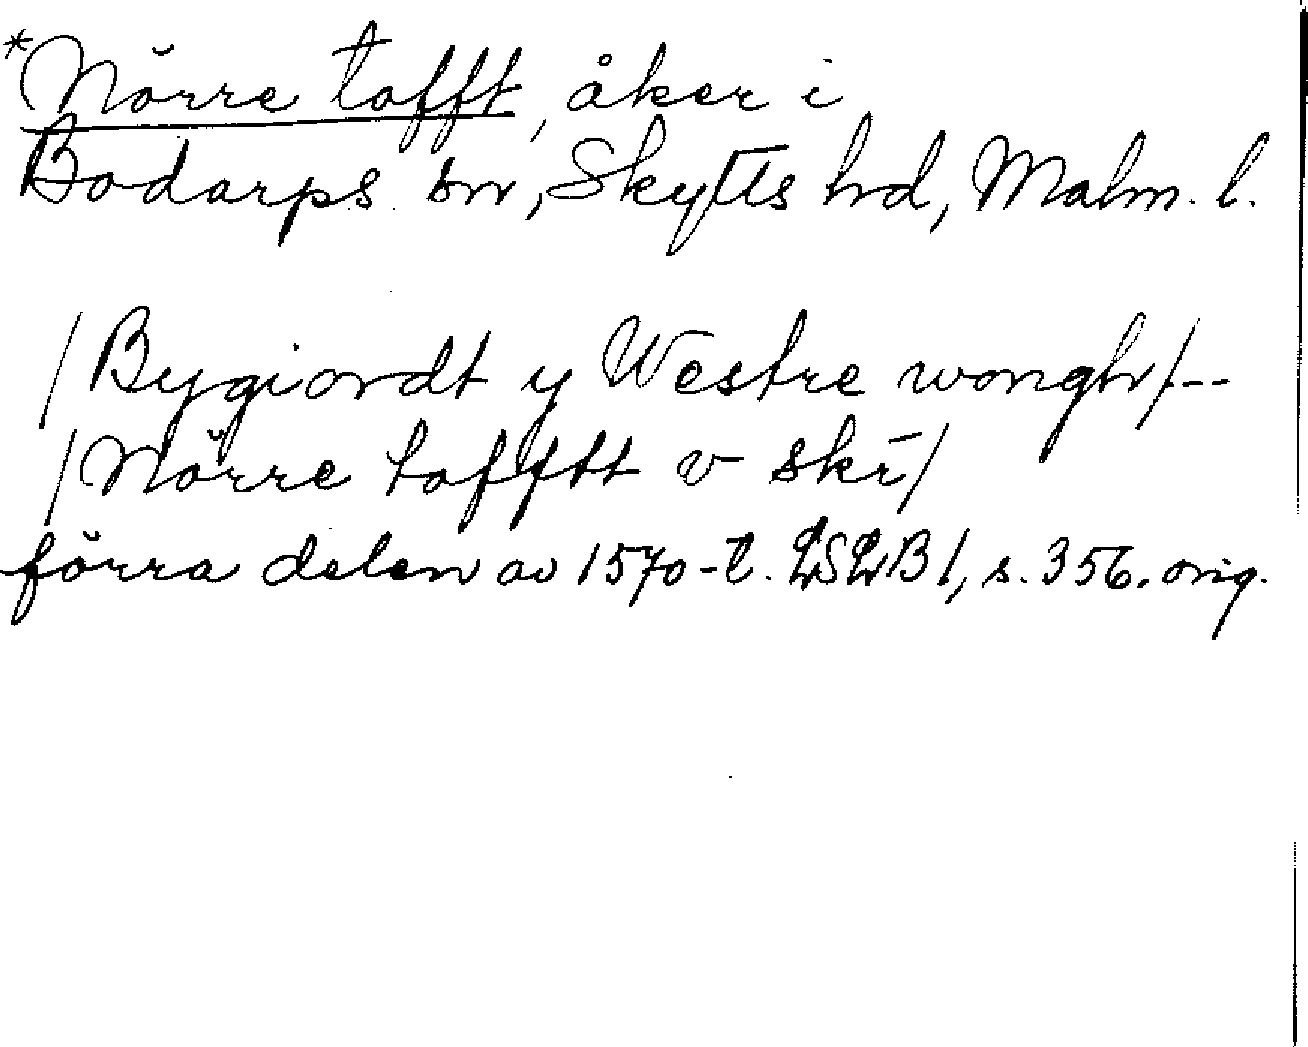 *Nörre tofft, åker i
Bodarps sn, Skytts hd, Malm. l.
/Bygiordt y Westre wongh/--
/Nörre tofftt v skī/
förra delen av 1570-t. LSLB I, s. 356. orig.